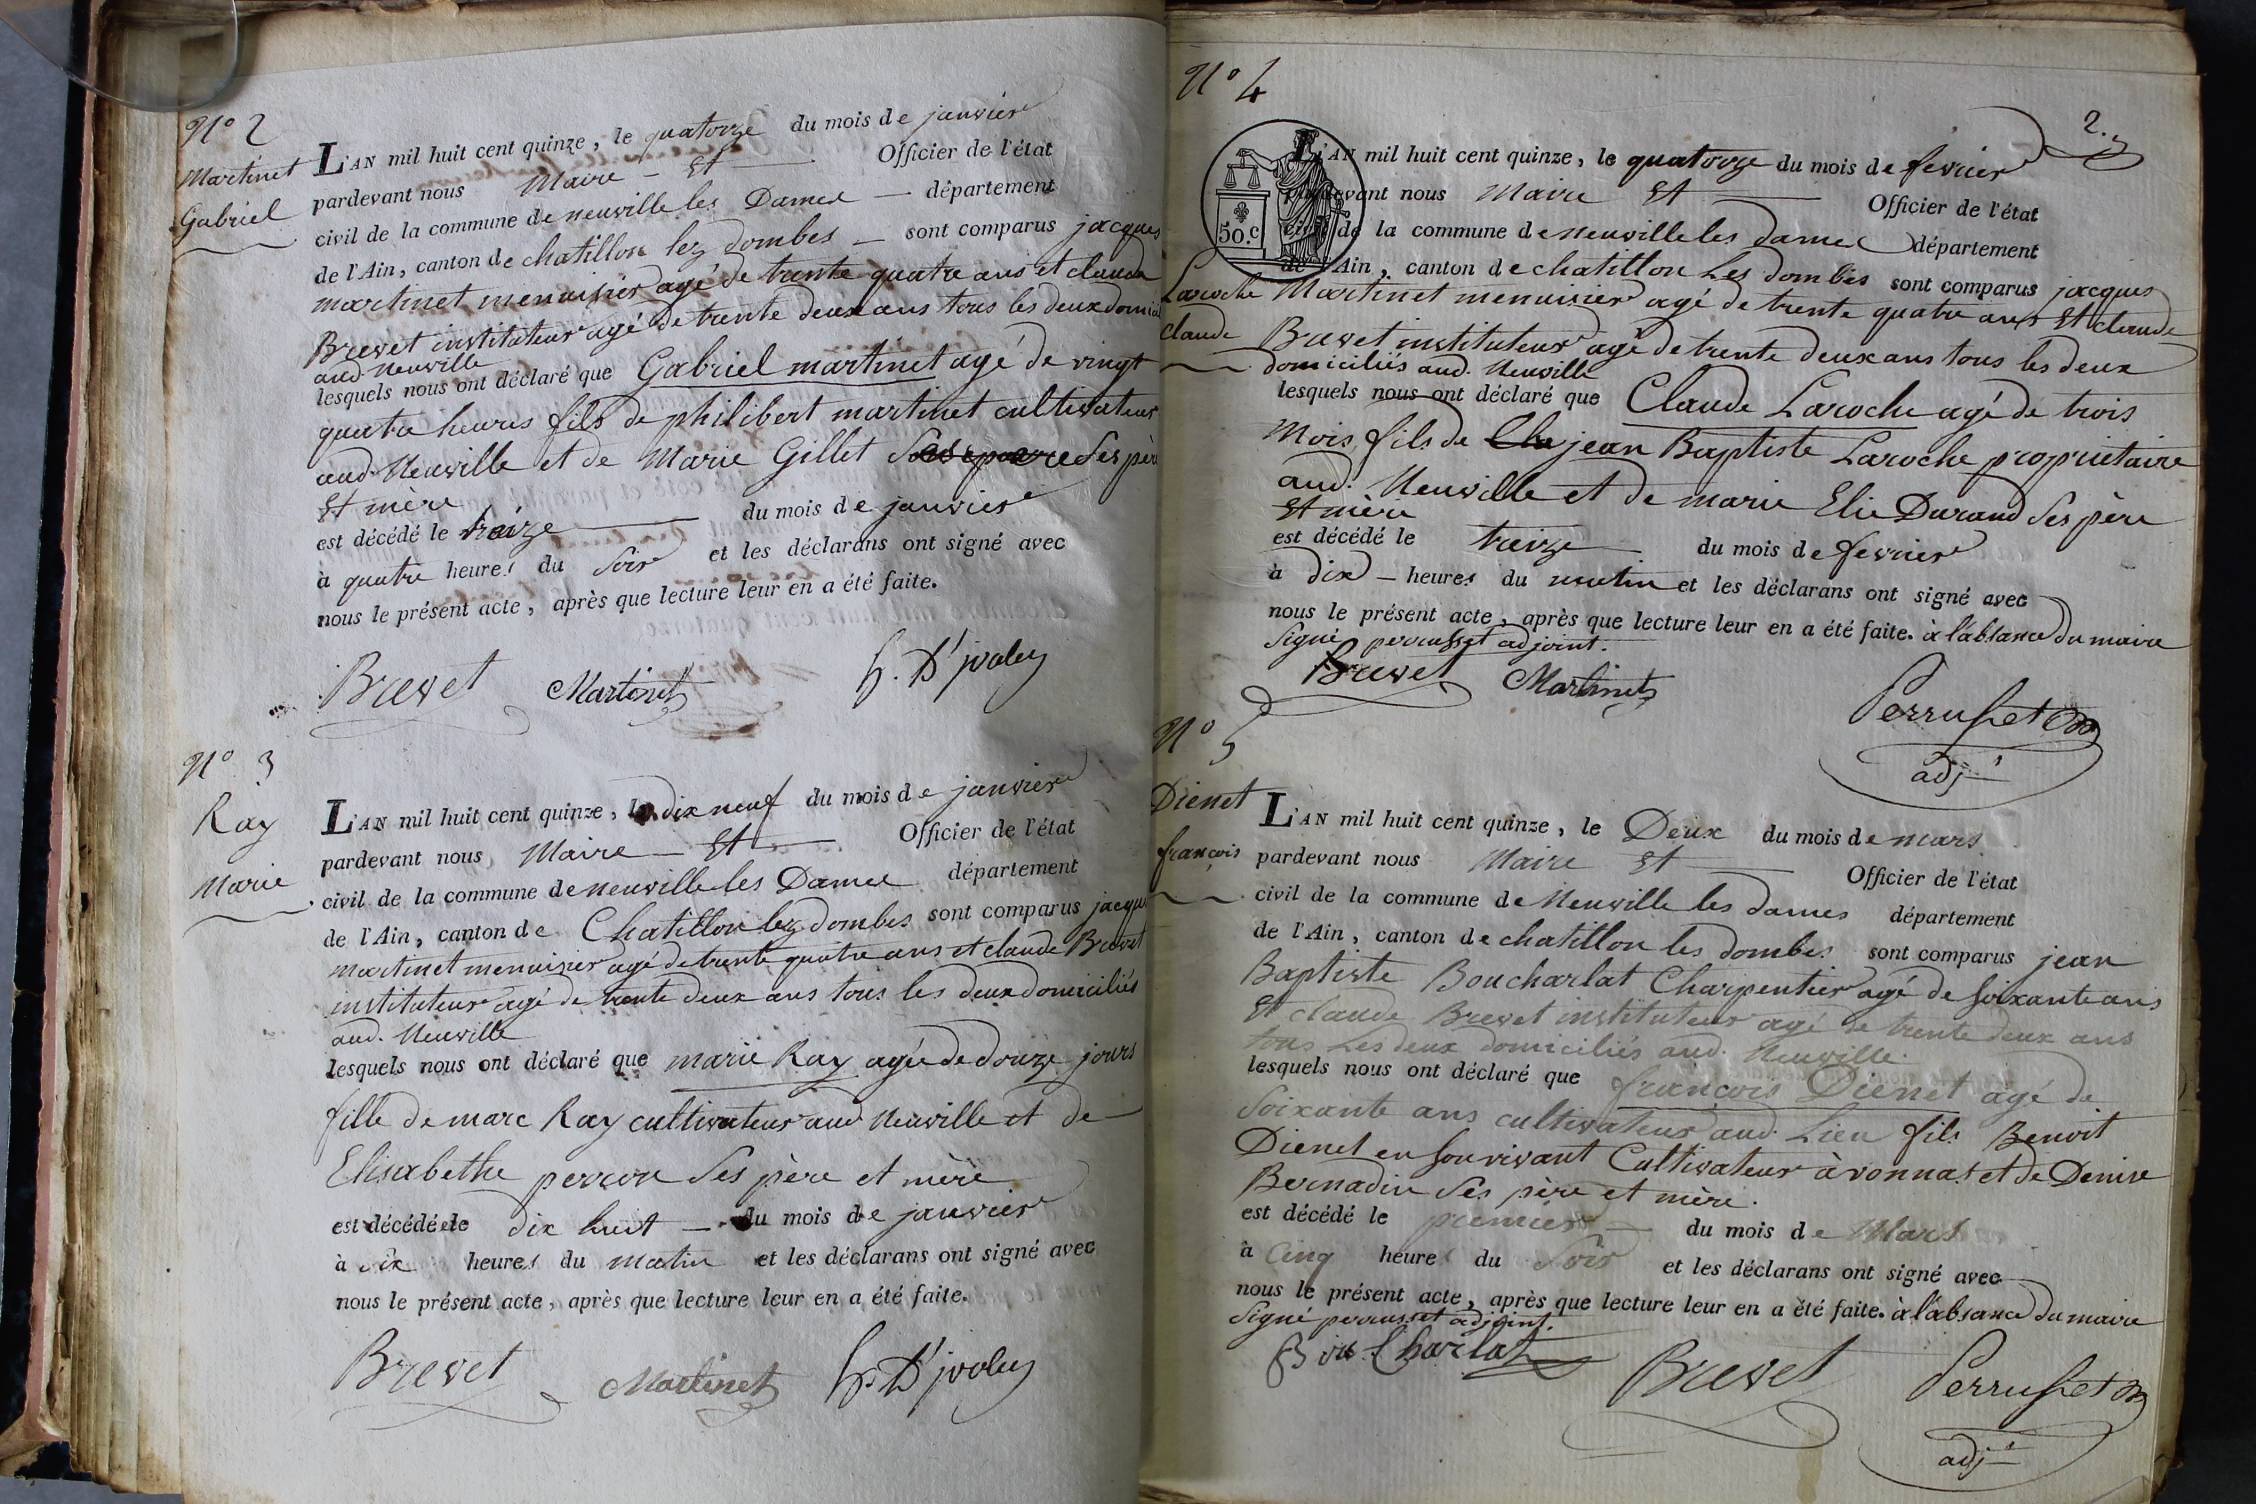 N° 2
Martinet
Gabriel
L'AN mil huit cent quinze, le quatorze du mois de janvier
pardevant nous Maire - Et Officier de l'état
civil de la commune de neuville les Dames département
de l'Ain, canton de chatillon lez dombes sont comparus jacques
martinet menuisier agé de trente quatre ans et claude
Brevet instituteur agé de trente deux ans tous les deux domici
aud. Neuville
lesquels nous ont déclaré que Gabriel martinet agé de vingt
quatre heures fils de philibert martinet cultivateur
aud. Neuville et de Marie Gillet ses père
Et mère
est décédé le treize du mois de janvier
à quatre heures du Soir et les déclarans ont signé avec
nous le présent acte, après que lecture leur en a été faite.
Brevet Martinet
N° 3
Ray
Marie
L'AN mil huit cent quinze, le dix neuf du mois de janvier
pardevant nous Maire - Et Officier de l'état
civil de la commune de neuville les Dames département
de l'Ain, canton de Chatillon lez dombes sont comparus jacques
martinet menuisier agé de trente quatre ans et claude Brevet
instituteur agé de trente deux ans tous les deux domiciliés
aud. Neuville
lesquels nous ont déclaré que marie Ray agée de douze jours
fille de marc Ray cultivateur aud Neuville et de
Elisabethe perron Ses père et mère
est décédée le dix huit du mois de janvier
à heures du matin et les déclarans ont signé avec
nous le présent acte, après que lecture leur en a été faite.
Brevet Martinet
N° 4
2.
Laroche
Claude
50.c
L'AN mil huit cent quinze, le quatorze du mois de fevrier
pardevant nous Maire Et Officier de l'état
civil de la commune de neuville les dames département
de l'Ain, canton de chatillon Les dombes sont comparus jacques
Martinet menuisier agé de trente quatre ans Et claude
Brevet instituteur agé de trente deux ans tous les deux
domiciliés aud. Neuville
lesquels nous ont déclaré que Claude Laroche agé de trois
Mois fils de jean Baptiste Laroche proprietaire
aud. Neuville et de marie Elie Durand Ses père
Et mère
est décédé le treize du mois de fevrier
à dix - heures du matin et les déclarans ont signé avec
nous le présent acte, après que lecture leur en a été faite. à l'absance du maire
Signé perrusset adjoint.
Brevet Martinet
Perrusset
adjt
N° 5
Dienet
françois
L'AN mil huit cent quinze, le Deux du mois de mars
pardevant nous Maire Et Officier de l'état
civil de la commune de Neuville les dames département
de l'Ain, canton de chatillon les dombes sont comparus jean
Baptiste Boucharlat Charpentier agé de soixante ans
Et claude Brevet instituteur agé de trente deux ans
tous Les deux domiciliés aud. Neuville.
lesquels nous ont déclaré que françois Dienet agé de
Soixante ans cultivateur aud. Lieu fils Benoit
Dienet en son vivant Cultivateur à vonnas et de Denise
Bernadin Ses père et mère.
est décédé le premier du mois de Mars
à Cinq heures du Soir et les déclarans ont signé avec
nous le présent acte, après que lecture leur en a été faite. à l'absance du maire
Signé perrusset adjoint.
Boucharlat Brevet Perrusset
adjt